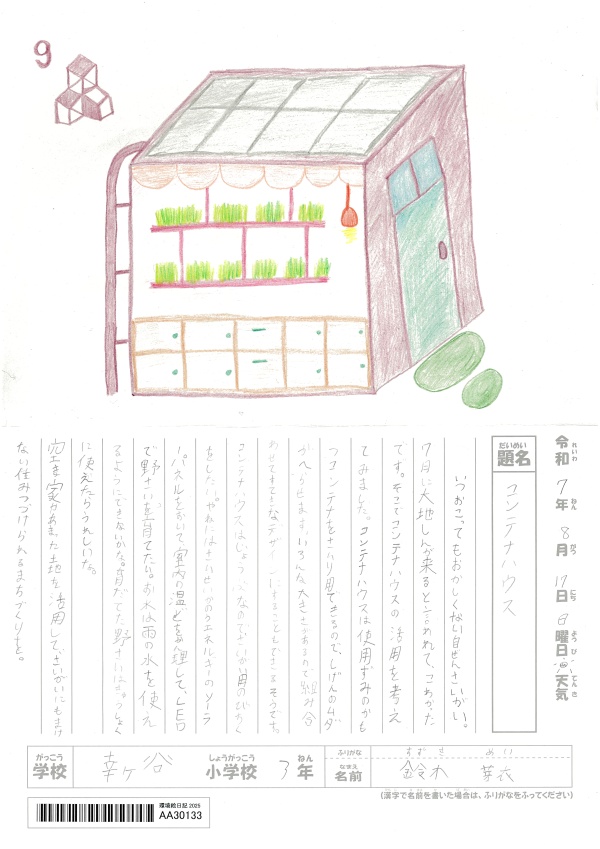 9
令和7年8月17日日曜日天気
れいわ ねん がつ にち ようび てんき
だいめい
題名
コンテナハウス
いつおこってもおかしくない自ぜんさいがい。
7月に大地しんが来ると言われて、こわかった
です。そこでコンテナハウスの活用を考え
てみました。コンテナハウスは使用ずみのかも
つコンテナをさい利用できるので、しげんのムダ
がへらせます。いろんな大きさがあるので、組み合
わせてすてきなデザインにすることもできるそうです。
コンテナハウスはじょうぶなのでさいがい用のびちく
をしたい。やねにはさいせいかのうエネルギーのソーラ
ーパネルをおいて、室内の温どをかん理して、LED
で野さいを育てたい。お水は雨の水を使え
るようにできないかな。育だてた野さいは
に使えたらうれしいな。
空き家やあまった土地を活用して、さいがいにもまけ
ない住みつづけられるまちづくりを。
がっこう
学校
幸ケ谷
しょうがっこう
小学校
3年
ねん
ふりがな
すずき めい
なまえ
名前
鈴木 芽衣
(漢字で名前を書いた場合は、ふりがなをふってください)
環境絵日記 2025
AA30133